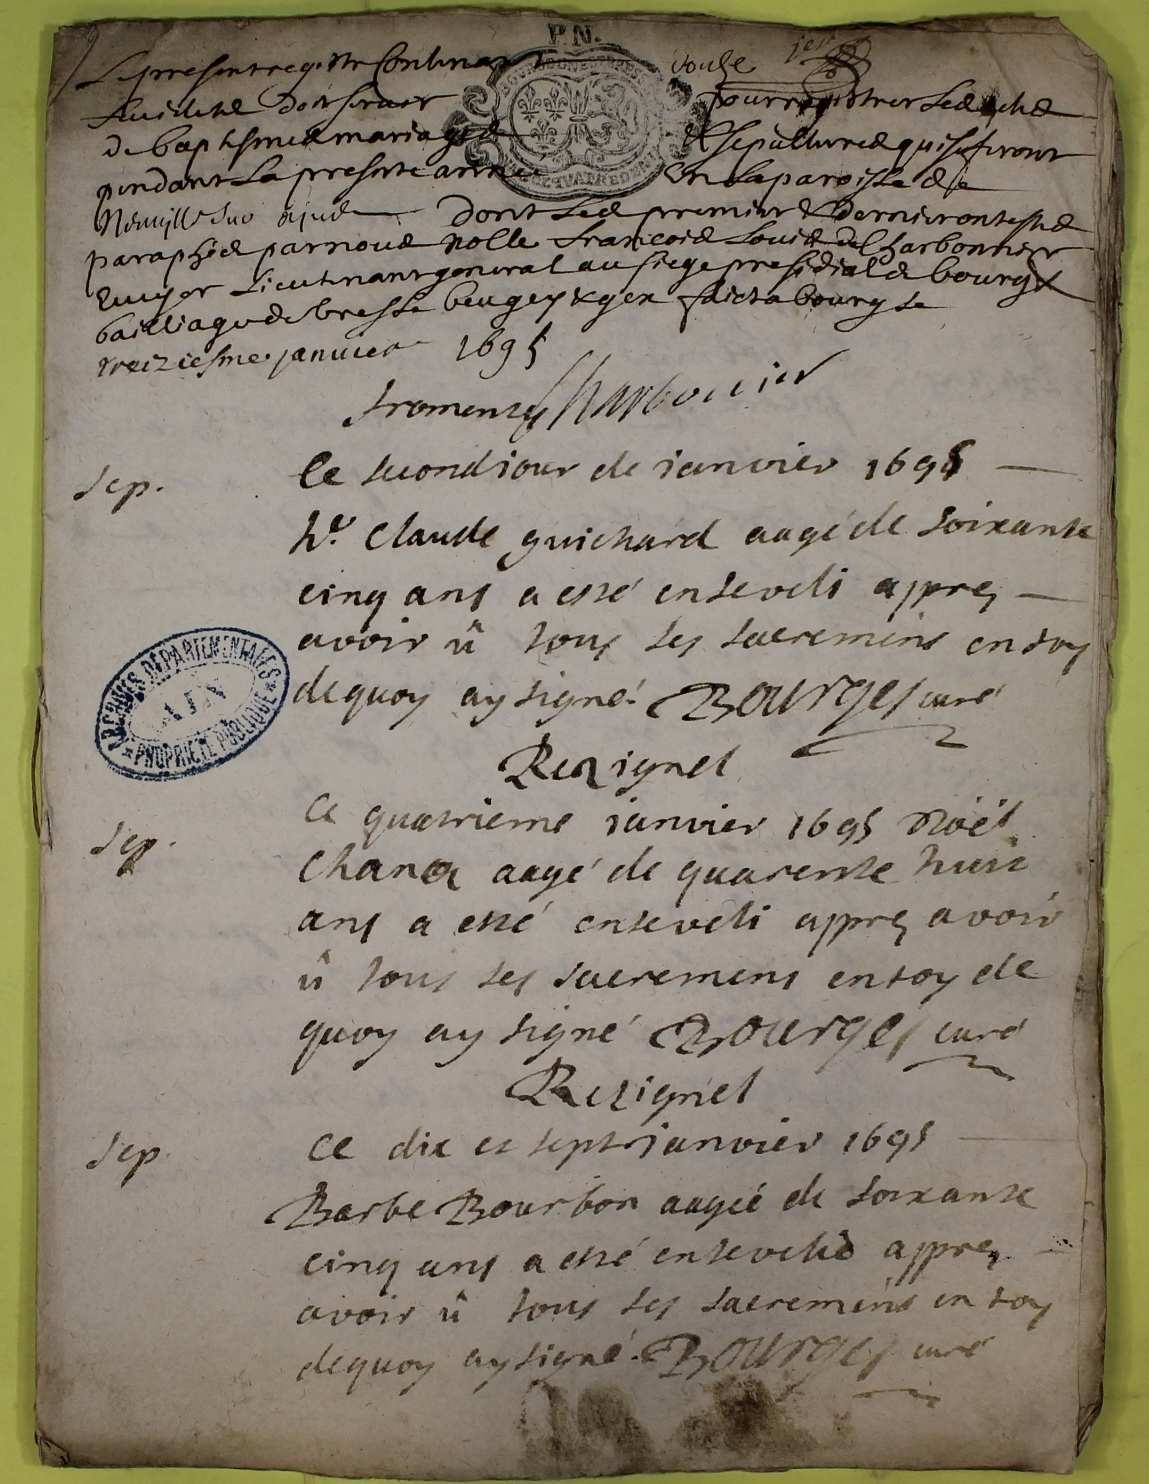 P.N.
Le present registre Contenant douze
feuillets doit servir pour registrer les actes
de baptesmes mariages & sepultures qui se feront
pendant la presente année en la paroisse de
Neuville sur dont les premier & dernier ont esté
paraphés par nous nolle François Louis de Charbonnier
Escuyer Lieutenant general au siege presidial de bourg &
bailliage de bresse beugey & gex faict a bourg le
treiziesme janvier 1695
fromentey Charbonnier
sep.
le second iour de ianvier 1695
h.^e Claude guichard aagé de soixante
cinq ans a esté enseveli appres
avoir û tous ses sacremens en foy
de quoy ay signé. Bourges curé
ARCHIVES DEPARTEMENTALES
AIN
PROPRIETE PUBLIQUE
Rezignel
sep.
Ce quatrieme ianvier 1695 Noël
Chanel aagé de quarente huit
ans a esté enseveli appres avoir
û tous ses sacremens en foy de
quoy ay signé Bourges curé
Rezignel
sep.
Ce dix et sept ianvier 1695
Barbe Bourbon aagée de soixante
cinq ans a esté ensevelie appres
avoir û tous ses sacremens en foy
de quoy ay signé. Bourges curé